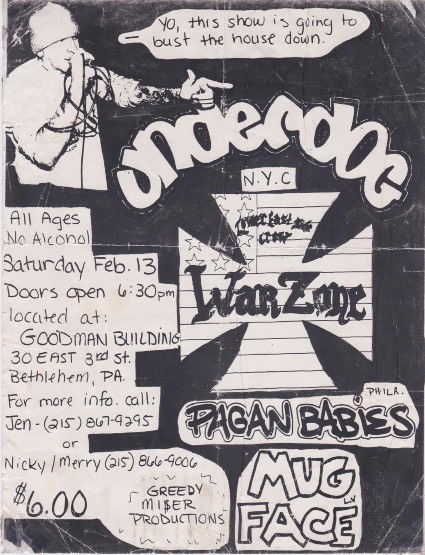 Yo, this show is going to
bust the house down.
underdog
N.Y.C
Lower East Side
Crew
WarZone
All Ages
No Alcohol
Saturday Feb. 13
Doors open 6:30pm
located at:
GOODMAN BUILDING
30 EAST 3rd St.
Bethlehem, PA.
For more info. call:
Jen-(215) 867-9295
or
Nicky/Merry (215) 866-9006
$6.00
PHILA.
PAGAN BABIES
GREEDY
MI$ER
PRODUCTIONS
MUG
FACE
LV